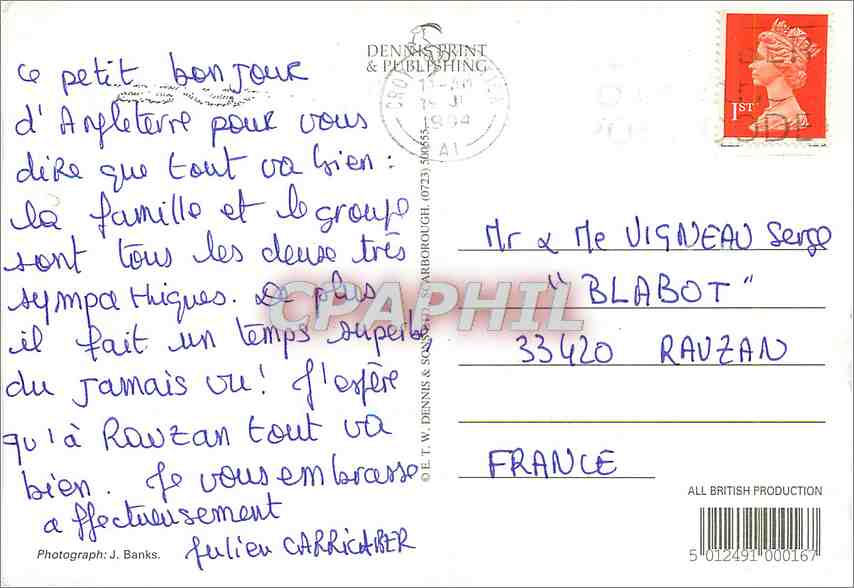 Ce petit bonjour
d'Angleterre pour vous
dire que tout va bien :
la famille et le groupe
sont tous les deux très
sympathiques. De plus
il fait un temps superbe,
du jamais vu ! J'espère
qu'à Rauzan tout va
bien. Je vous embrasse
affectueusement
Julien CARRICABER
Photograph: J. Banks.
DENNIS PRINT
& PUBLISHING
© E. T. W. DENNIS & SONS LTD., SCARBOROUGH. (0723) 500555
1994
A1
1ST
Mr & Me VIGNEAU Serge
"BLABOT"
33420 RAUZAN
FRANCE
ALL BRITISH PRODUCTION
5 012491 000167
CPAPHIL